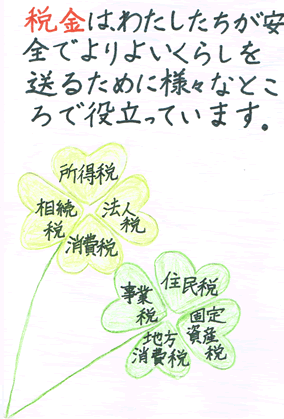 税金はわたしたちが安
全でよりよいくらしを
送るために様々なとこ
ろで役立っています。
所得税
相続
税
法人
税
消費税
住民税
事業
税
固定
資産
税
地方
消費税